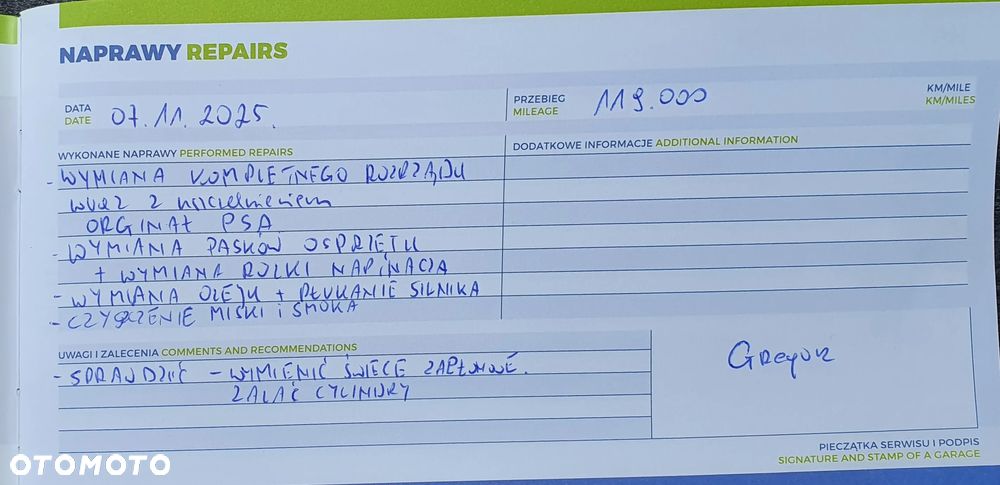 NAPRAWY REPAIRS
DATA
DATE
07.11.2025.
PRZEBIEG
MILEAGE
119.000
KM/MILE
KM/MILES
WYKONANE NAPRAWY PERFORMED REPAIRS
DODATKOWE INFORMACJE ADDITIONAL INFORMATION
- WYMIANA KOMPLETNEGO ROZRZĄDU
wraz z uszczelnieniem
ORGINAŁ PSA
- WYMIANA PASKÓW OSPRZĘTU
+ WYMIANA ROLKI NAPINACZA
- WYMIANA OLEJU + PŁUKANIE SILNIKA
- CZYSZCZENIE MISKI i SMOKA
UWAGI I ZALECENIA COMMENTS AND RECOMMENDATIONS
- SPRAWDZIĆ - WYMIENIĆ ŚWIECE ZAPŁONOWE.
ZALAĆ CYLINDRY
Gregor
PIECZĄTKA SERWISU I PODPIS
SIGNATURE AND STAMP OF A GARAGE
OTOMOTO